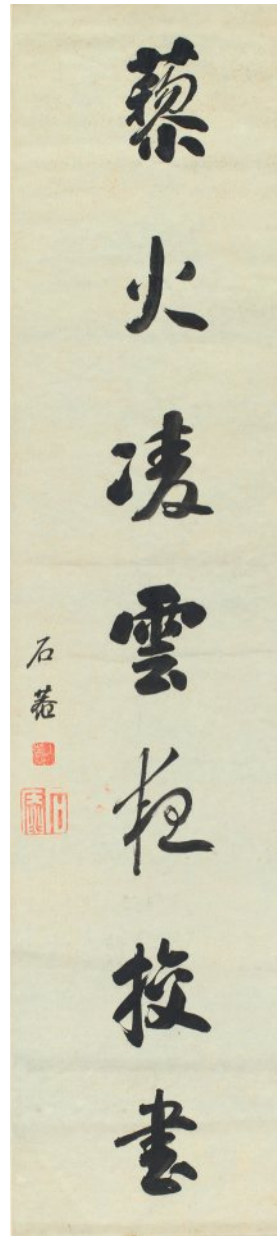 藜火凌雲夜挍書
石菴